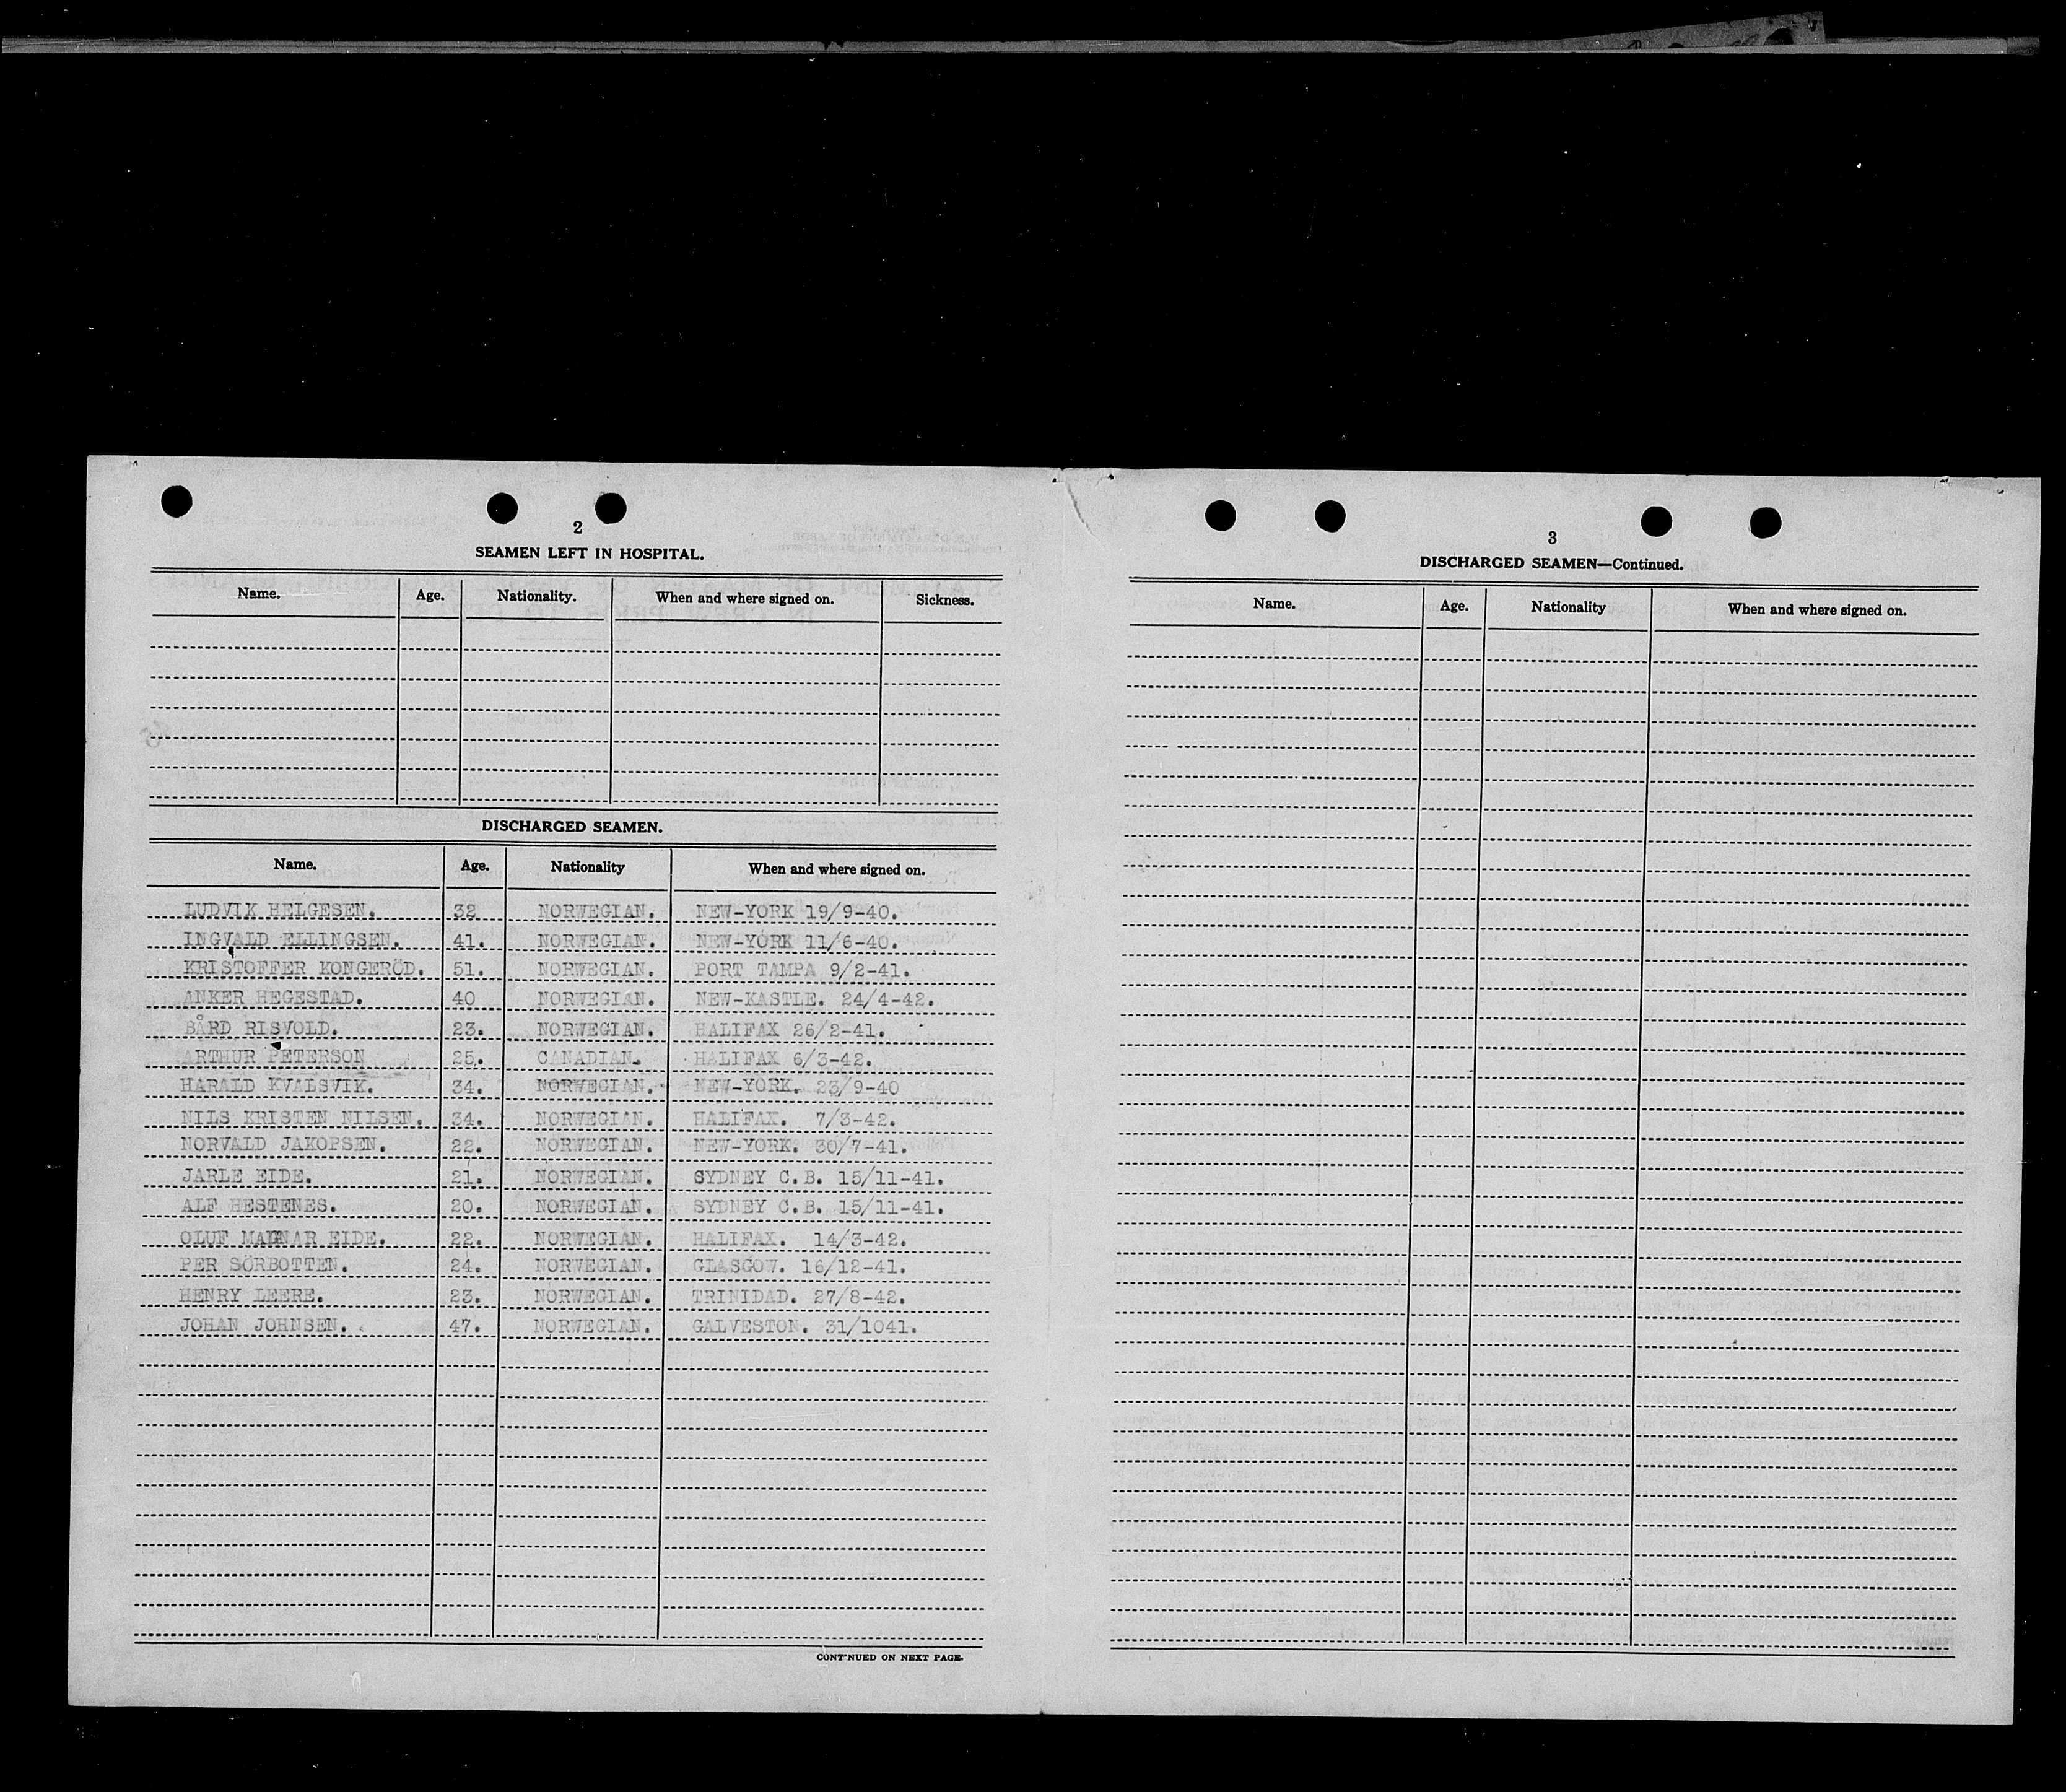 2
SEAMEN LEFT IN HOSPITAL.
Name. Age. Nationality. When and where signed on. Sickness.
DISCHARGED SEAMEN.
Name. Age. Nationality When and where signed on.
LUDVIK HELGESEN. 32 NORWEGIAN. NEW-YORK 19/9-40.
INGVALD ELLINGSEN. 41. NORWEGIAN. NEW-YORK 11/6-40.
KRISTOFFER KONGERÖD. 51. NORWEGIAN. PORT TAMPA 9/2-41.
ANKER HEGESTAD. 40 NORWEGIAN. NEW-KASTLE. 24/4-42.
BÅRD RISVOLD. 23. NORWEGIAN. HALIFAX 26/2-41.
ARTHUR PETERSON 25. CANADIAN. HALIFAX 6/3-42.
HARALD KVALSVIK. 34. NORWEGIAN. NEW-YORK. 23/9-40
NILS KRISTEN NILSEN. 34. NORWEGIAN. HALIFAX. 7/3-42.
NORVALD JAKOPSEN. 22. NORWEGIAN. NEW-YORK. 30/7-41.
JARLE EIDE. 21. NORWEGIAN. SYDNEY C.B. 15/11-41.
ALF HESTENES. 20. NORWEGIAN. SYDNEY C.B. 15/11-41.
OLUF MAGNAR EIDE. 22. NORWEGIAN. HALIFAX. 14/3-42.
PER SÖRBOTTEN. 24. NORWEGIAN. GLASGOW. 16/12-41.
HENRY LEERE. 23. NORWEGIAN. TRINIDAD. 27/8-42.
JOHAN JOHNSEN. 47. NORWEGIAN. GALVESTON. 31/1041.
CONT'NUED ON NEXT PAGE.
3
DISCHARGED SEAMEN—Continued.
Name. Age. Nationality When and where signed on.